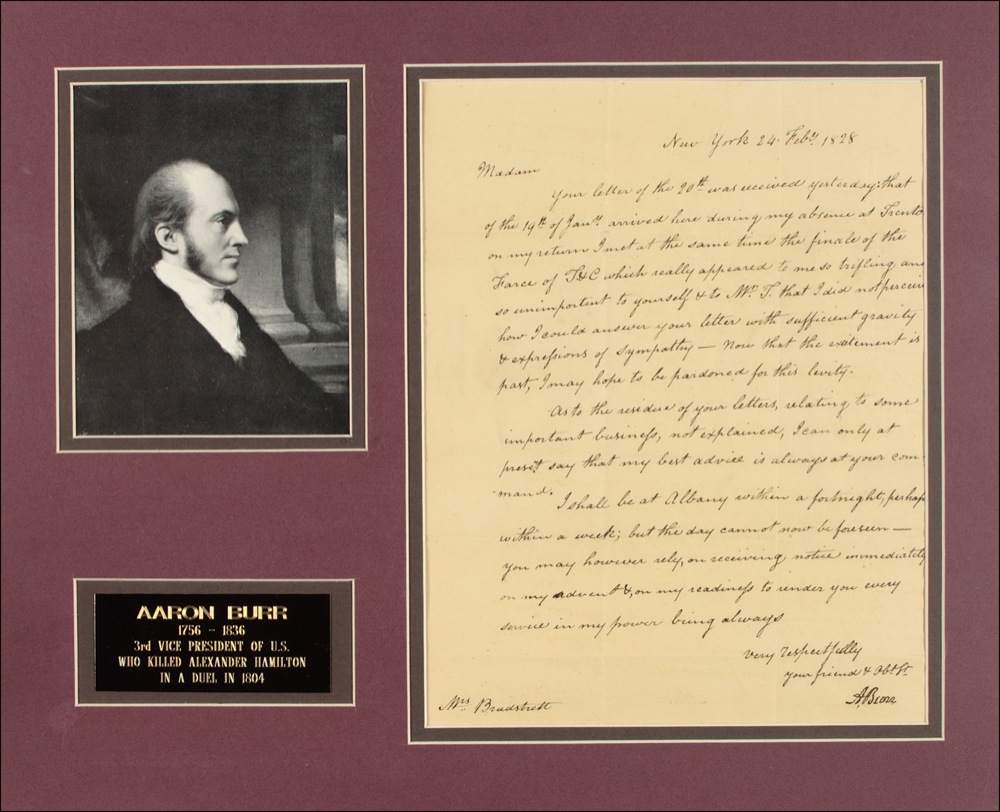 New York 24 Feby. 1828
Madam
Your letter of the 20th was received yesterday: that
of the 19th of Jany. arrived here during my absence at Trento
on my return I met at the same time the finale of the
Farce of T&C which really appeared to me so trifling and
so unimportant to yourself & to Mr. T. that I did not perceive
how I could answer your letter with sufficient gravity
& expressions of sympathy — Now that the excitement is
past, I may hope to be pardoned for this levity.
As to the residue of your letters, relating to some
important business, not explained, I can only at
preset say that my best advice is always at your com
mand.
I shall be at Albany within a fortnight, perhaps
within a week; but the day cannot now be foreseen —
you may however rely, on receiving notice immediately
on my advent &, on my readiness to render you every
service in my power being always
Very respectfully
your friend & Obt St.
A. Burr
Mrs Bradstrett
AARON BURR
1756 - 1836
3rd VICE PRESIDENT OF U.S.
WHO KILLED ALEXANDER HAMILTON
IN A DUEL IN 1804